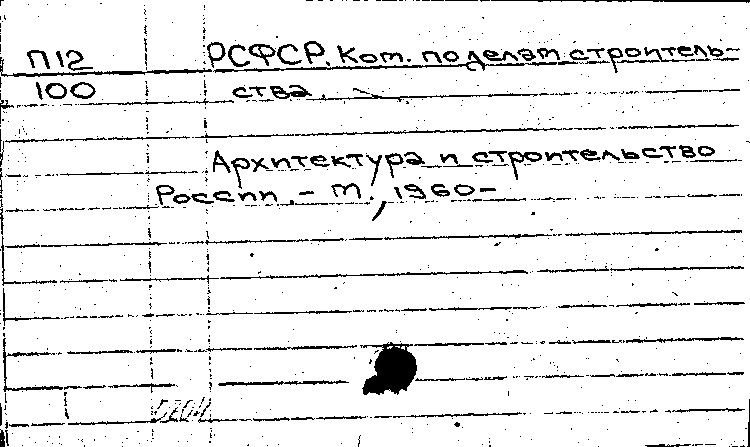 П12 РСФСР. Ком. по делам строитель-
100 ства.
Архитектура и строительство
России. – М., 1960–